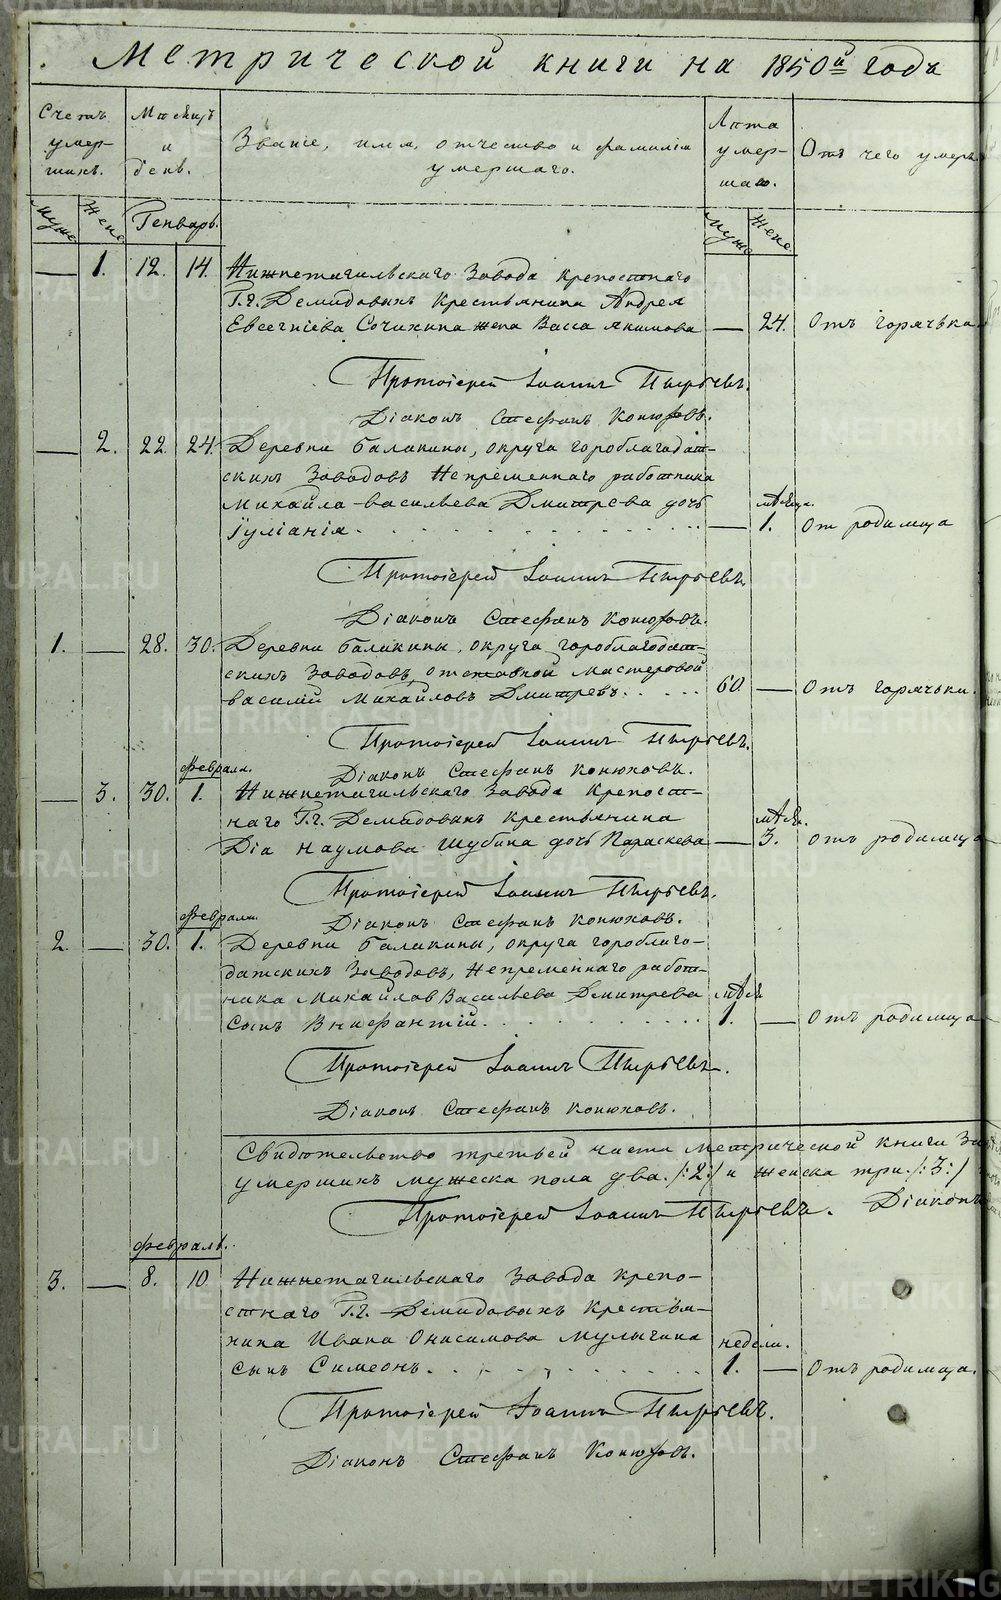 Метрической книги на 1850й годъ
Счетъ умер-шихъ.
Мѣсяцъ и день.
Званіе, имя, отчество и фамилія умершаго.
Лѣта умер-шаго.
Отъ чего умеръ
Муже Жене Генварь. Муже Жене
— 1. 12. 14. Нижнетагильскаго Завода крепостнаго
Г.г. Демидовыхъ Крестьянина Андрея
Евсегніева Сочихина жена Васса Якимова — 24. Отъ горячьки
Протоіерей Іоаннъ Пырьевъ.
Діаконъ Стефанъ Конюховъ.
— 2. 22. 24. Деревни Балакины, округа гороблагодат-
скихъ Заводовъ Непременнаго работника
Михайла Васильева Дмитрева дочь мѣсяца.
Іуліанія. — 1. От родимца
Протоіерей Іоаннъ Пырьевъ.
Діаконъ Стефанъ Конюховъ.
1. — 28. 30. Деревни Балакины, округа гороблагодат-
скихъ Заводовъ, отставной мастеровой
василій Михайловъ Дмитревъ. 60. — Отъ горячьки.
Протоіерей Іоаннъ Пырьевъ.
Февраля. Діаконъ Стефанъ Конюховъ.
— 3. 30. 1. Нижнетагильскаго Завода Крепост-
наго Г.г. Демидовыхъ Крестьянина мѣся.
Діа Наумова Шубина дочь Параскева — 3. отъ родимца
Протоіерей Іоаннъ Пырьевъ.
Февраля. Діаконъ Стефанъ Конюховъ.
2. — 30. 1. Деревни Балакины, округа гороблаго-
датскихъ Заводовъ, Непременнаго работ-
ника Михайлов Васильева Дмитрева мѣся
сынъ Внифантій. 1. — Отъ родимца
Протоіерей Іоаннъ Пырьевъ.
Діаконъ Стефанъ Конюховъ.
Свидѣтельство третьей части метрической книги
умершихъ мужеска пола два /:2:/ и женска три /:3:/
Протоіерей Іоаннъ Пырьевъ. Діаконъ
Февраль.
3. — 8. 10. Нижнетагильскаго Завода крепо-
стнаго Г.г. Демидовыхъ Крестья-
нина Ивана Онисимова Мулычина недели.
сынъ Симеонъ. 1. — Отъ родимца.
Протоіерей Іоаннъ Пырьевъ.
Діаконъ Стефанъ Конюховъ.
METRIKI.GASO-URAL.RU